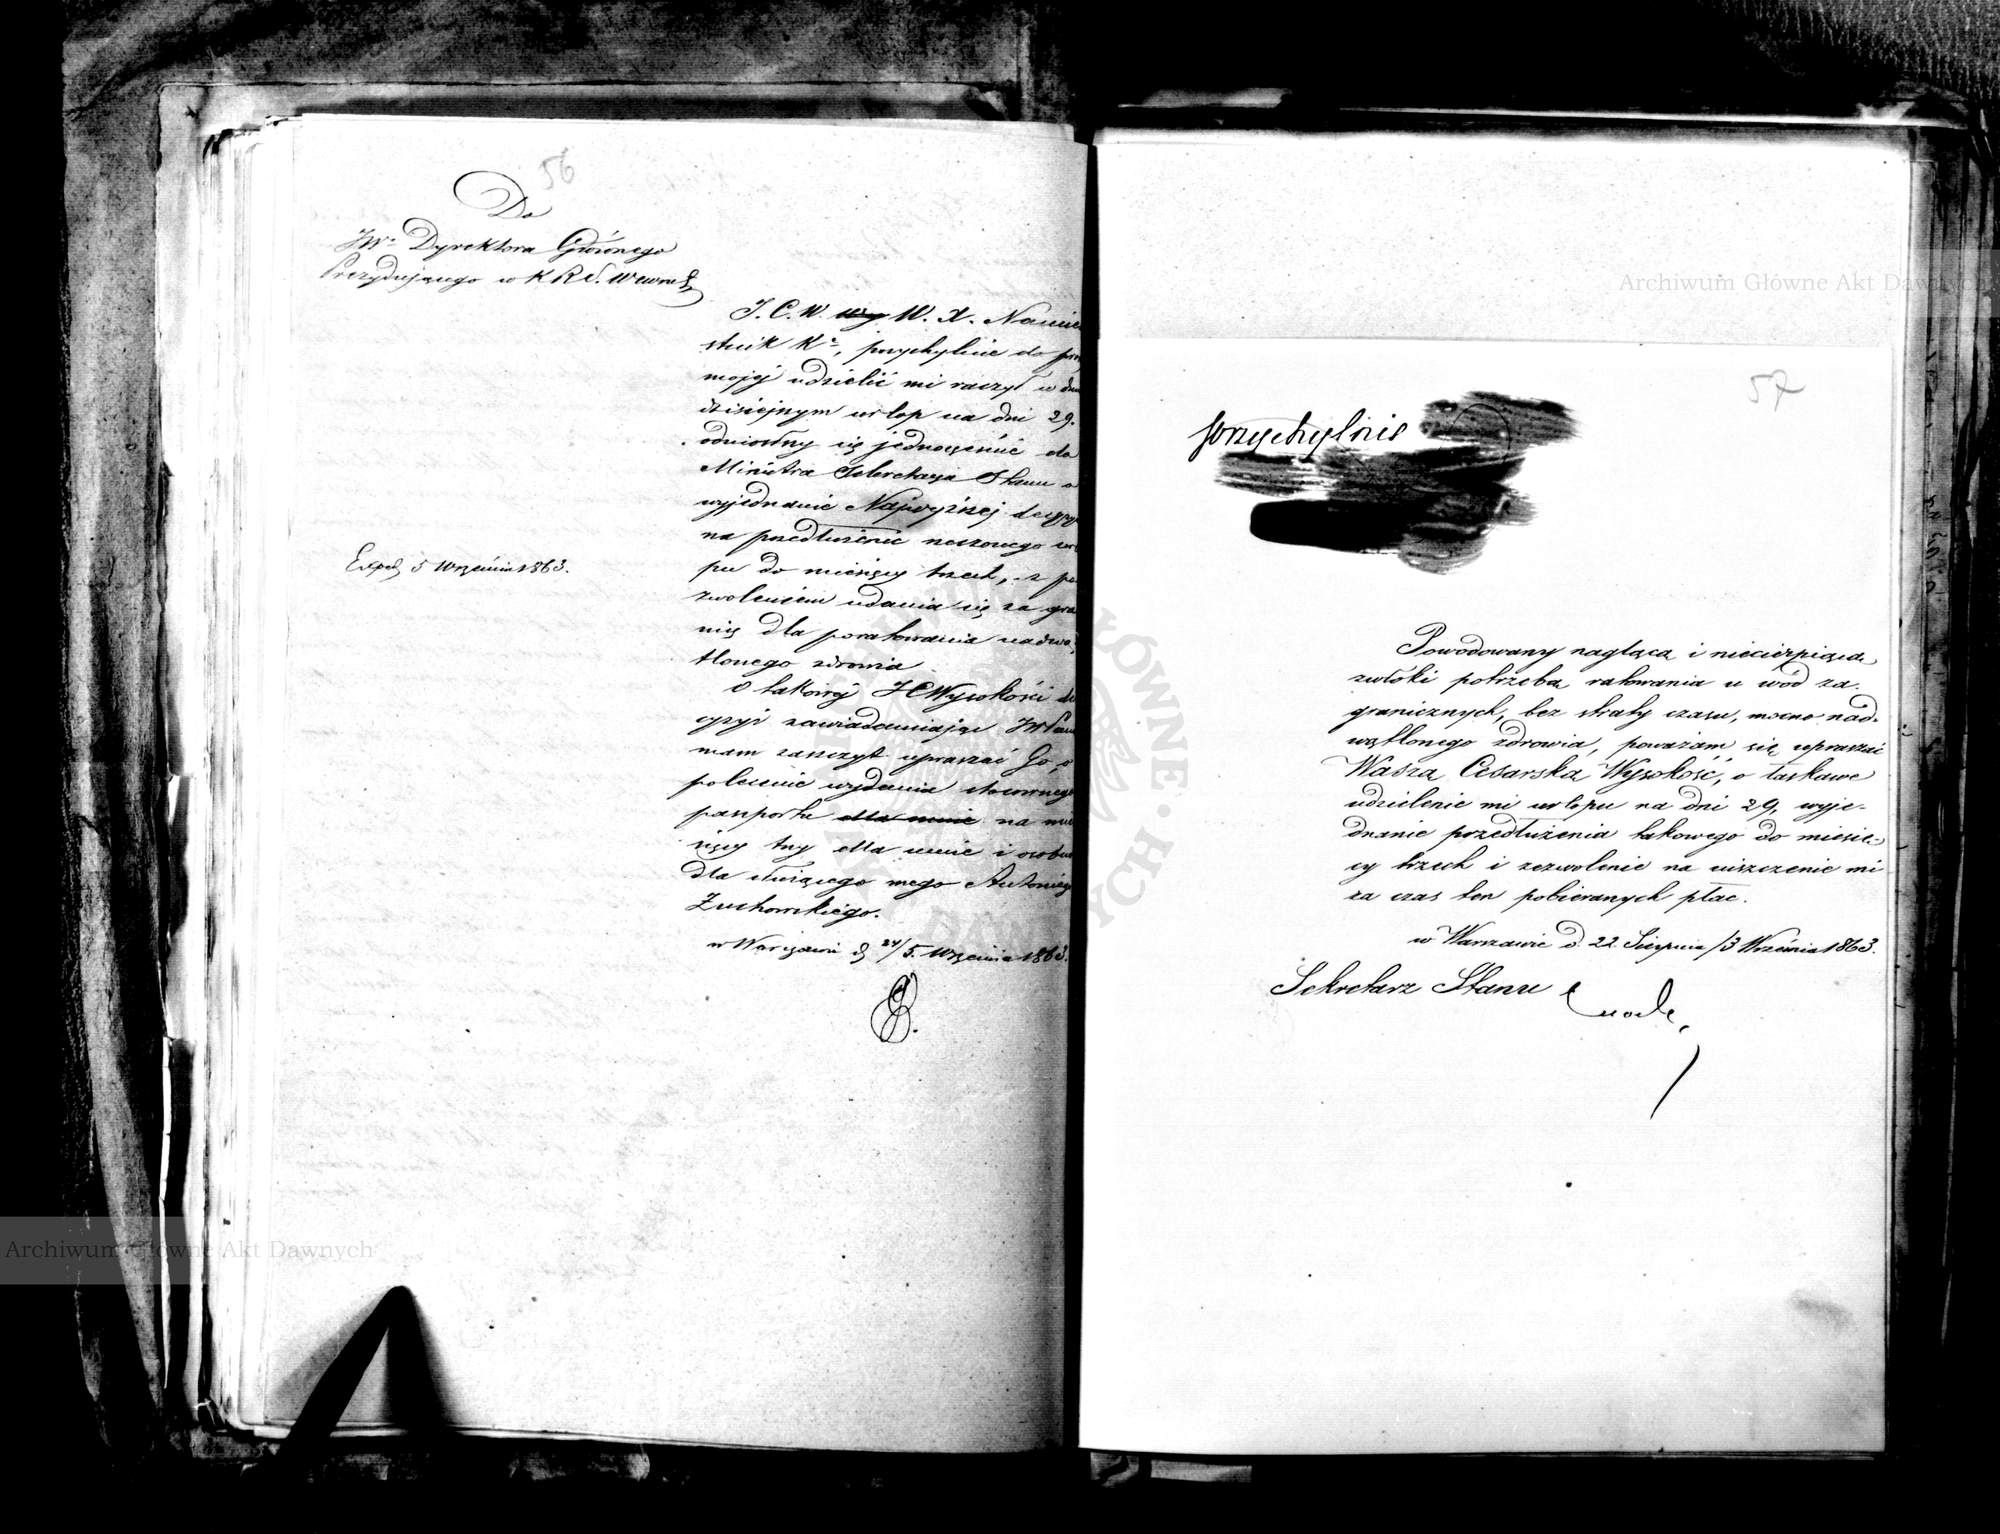 56
Do
JW. Dyrektora Głównego
Prezydującego w K R S. Wewnę
J. C. W. W. X. Namie
stnik K, przychylnie do proś
mojéj udzielić mi raczył w dniu
dzisiejszym urlop na dni 29.
odniosłszy się jednocześnie do
Ministra Sekretarza Stanu o
wyjednanie Najwyższej decyzyi
na przedłużenie rzeczonego url
pu do miesięcy trzech, z po
zwoleniem udania się za gra
nicę dla poratowania nadwą
tlonego zdrowia.
O takowéj JCWysokości de
cyzyi zawiadamiając JWPana
mam zaszczyt upraszać Go, o
polecenie wydania stosownego
paszportu dla mnie na mie
sięcy trzy dla mnie i osobno
dla służącego mego Antoniego
Żuchowskiego.
w Warszawie d 24/5. Września 1863.
Exped 5 Września 1863.
57
przychylnie
Powodowany naglącą i niecierpiącą
zwłoki potrzebą ratowania u wód za-
granicznych, bez straty czasu, mocno nad-
wątlonego zdrowia, poważam się upraszać
Waszą Cesarską Wysokość, o łaskawe
udzielenie mi urlopu na dni 29, wyje-
dnanie przedłużenia takowego do miesię-
cy trzech i zezwolenie na uiszczenie mi
za czas ten pobieranych płac.
w Warszawie d. 22 Sierpnia /3 Września 1863.
Sekretarz Stanu
Archiwum Główne Akt Dawnych
Archiwum Główne Akt Dawnych